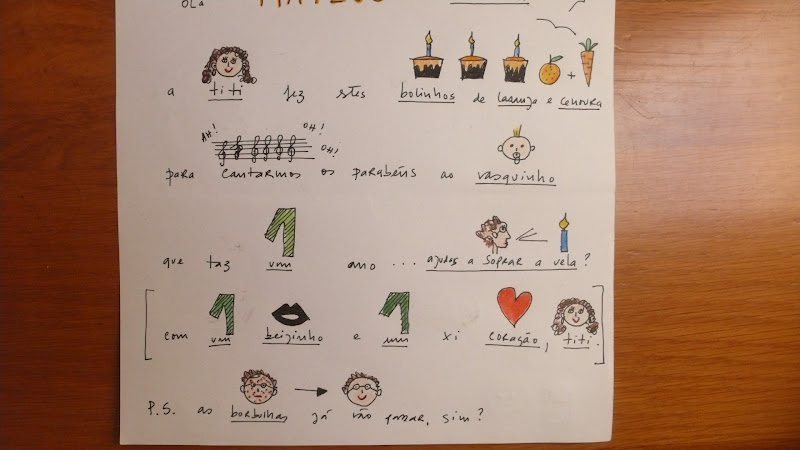 OLÁ MATEUS
a titi fez estes bolinhos de laranja e cenoura
+
AH! OH! OH!
para cantarmos os parabéns ao vasquinho
1
que faz um ano ... ajudas a soprar a vela?
1 1
[com um beijinho e um xi coração, titi.]
P.S. as borbulhas já vão passar, sim?